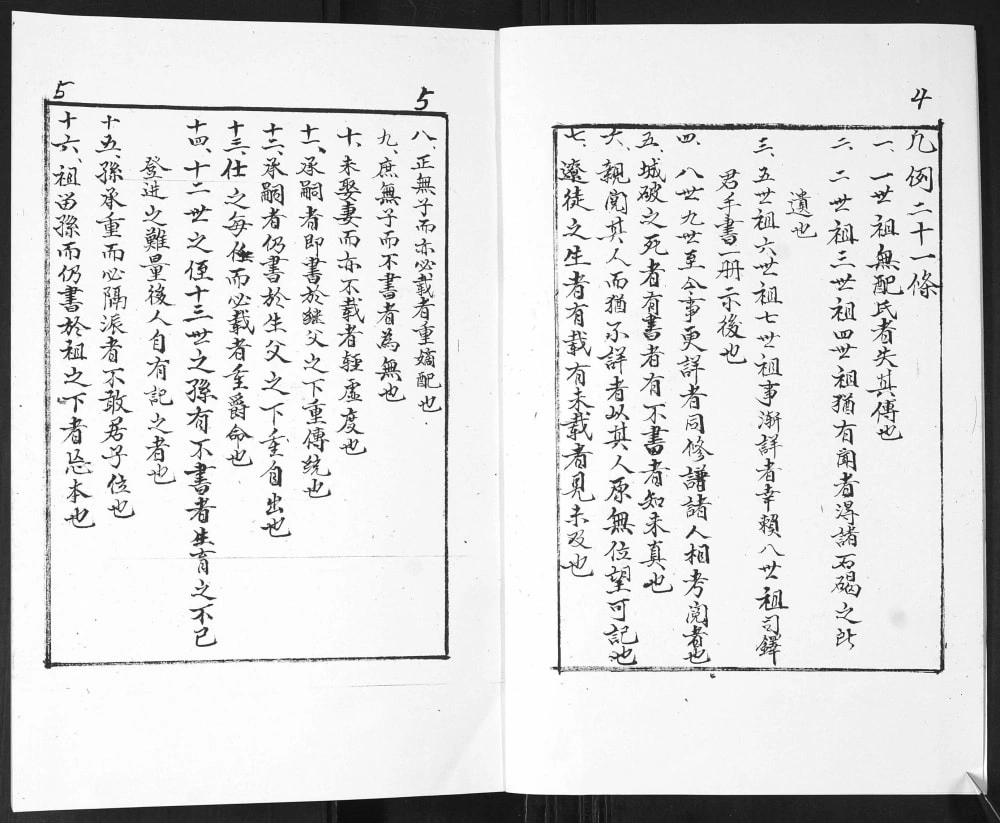 4
凡例二十一條
一、一世祖無配氏者失其傳也
二、二世祖三世祖四世祖猶有聞者得諸石碣之所
遺也
三、五世祖六世祖七世祖事漸詳者幸賴八世祖司鐸
君手書一册示後也
四、八世九世至今事更詳者同修譜諸人相考閱者也
五、城破之死者有書者有不書者知未真也
六、親閱其人而猶不詳者以其人原無位望可記也
七、遼徒之生者有載有未載者見未及也
5
5
八、正無子而亦必載者重嫡配也
九、庶無子而不書者為無也
十、未娶妻而亦不載者輕虛度也
十一、承嗣者即書於繼父之下重傳统也
十二、承嗣者仍書於生父之下重自出也
十三、仕之每任而必載者重爵命也
十四、十二世之侄十三世之孫有不書者生育之不已
登進之難量後人自有記之者也
十五、孫承重而必隔派者不敢居子位也
十六、祖留孫而仍書於祖之下者本也